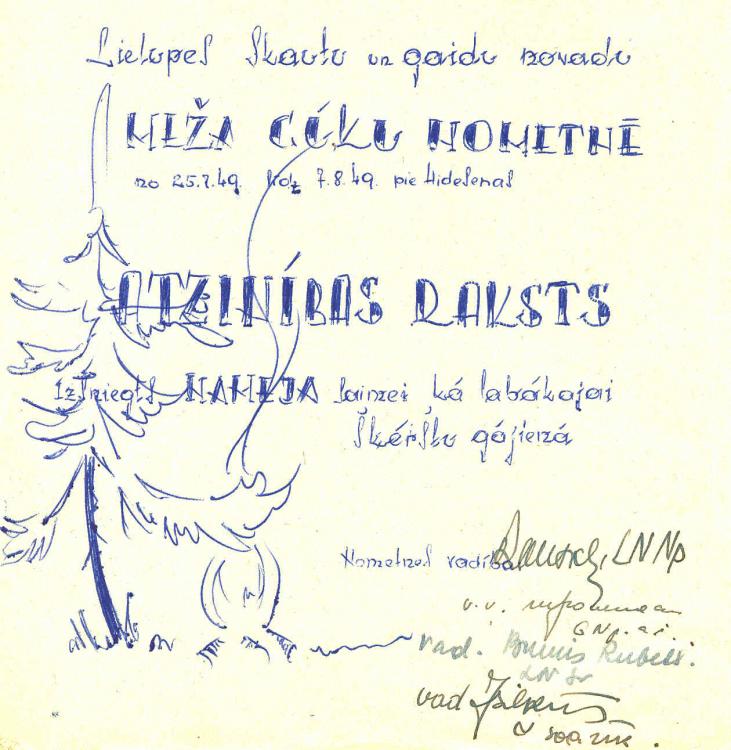 Lielupes skautu un gaidu novadu
MEŽA CŪKU NOMETNĒ
no 25.7.49. līdz 7.8.49. pie Hidesenas
ATZINĪBAS RAKSTS
Izsniegts NAMEJA saimei kā labākajai
šķēršļu gājienā
Nometnes vadība
LNNp
v.v.
GNp.
vad. Bruno Rubess.
LN
vad